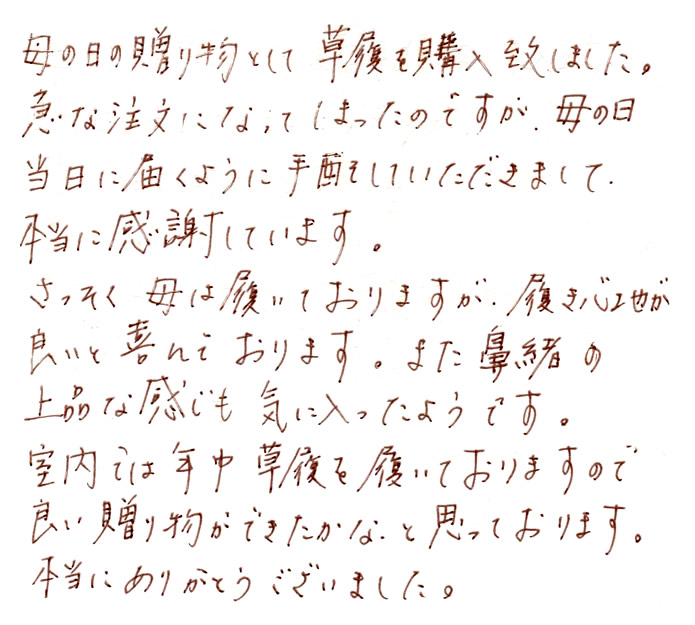 母の日の贈り物として草履を購入致しました。
急な注文になってしまったのですが、母の日
当日に届くように手配をしていただきまして、
本当に感謝しています。
さっそく母は履いておりますが、履き心地が
良いと喜んでおります。また鼻緒の
上品な感じも気に入ったようです。
室内では年中草履を履いておりますので
良い贈り物ができたかな、と思っております。
本当にありがとうございました。